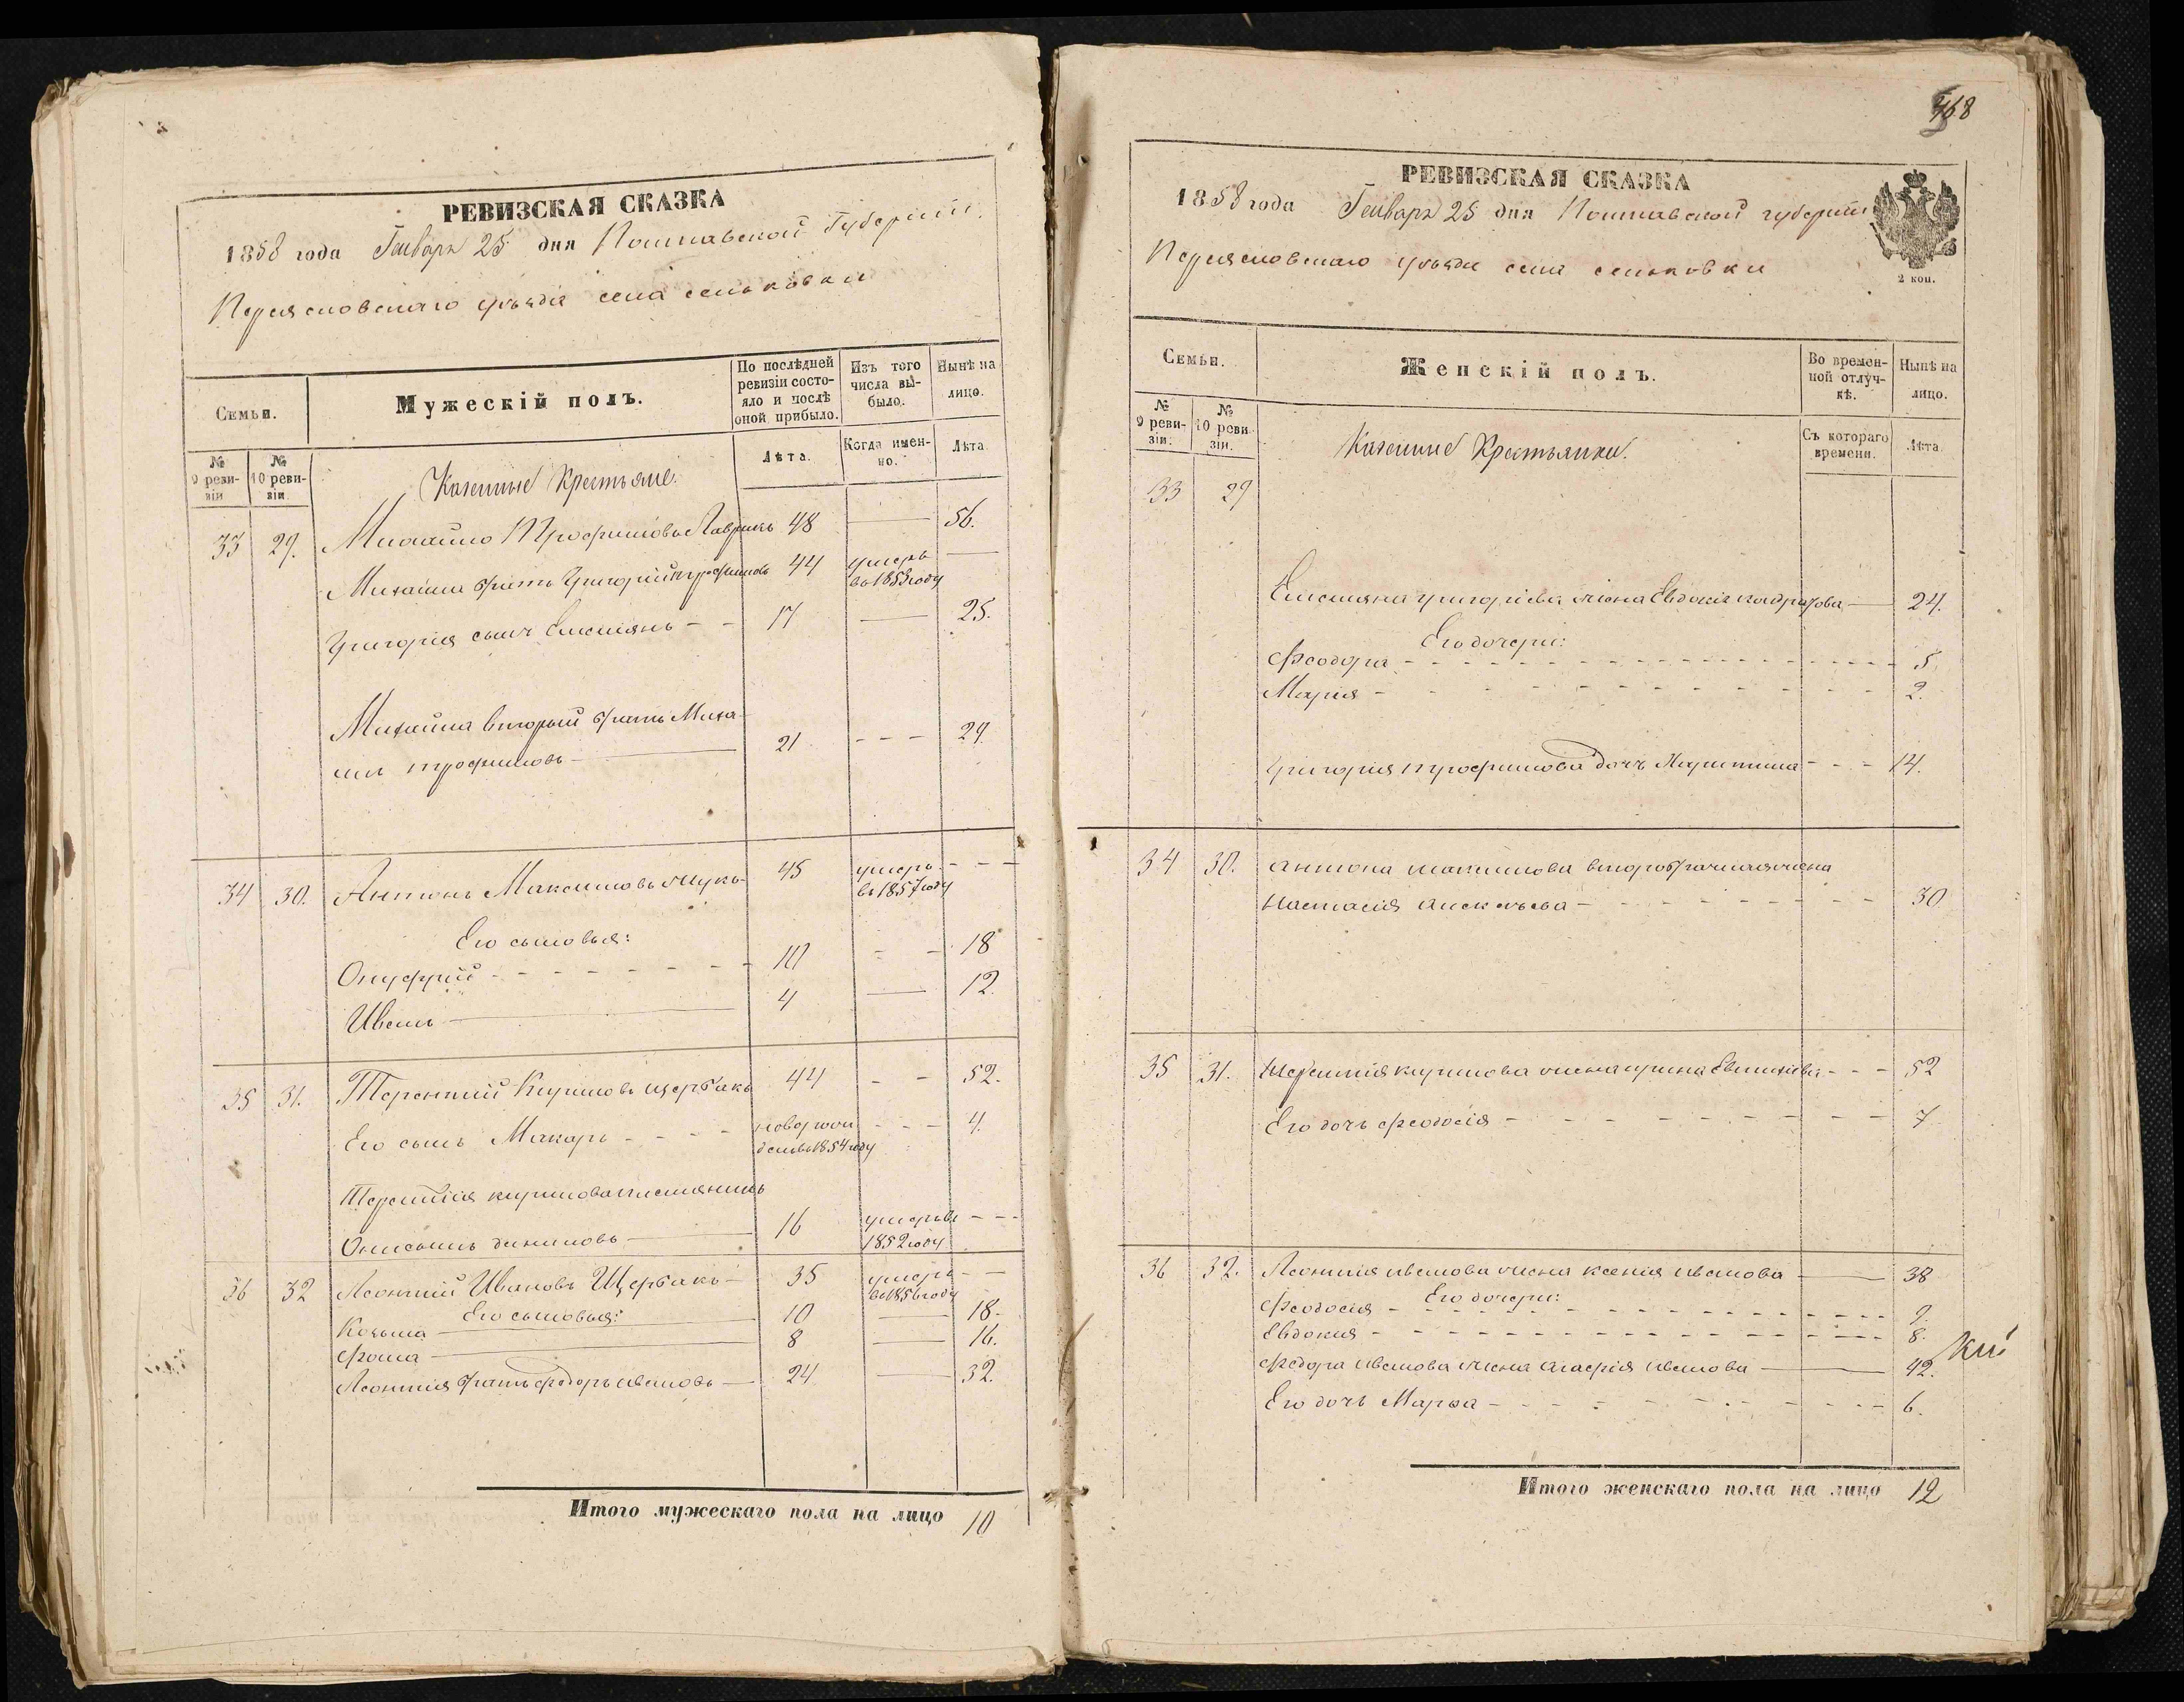 РЕВИЗСКАЯ СКАЗКА
1858 года Генваря 25 дня Полтавской Губернии.
Переясловскаго уѣзда села сеньковки
Семьи.
Мужескій полъ.
По послѣдней ревизіи состояло и послѣ оной прибыло.
Изъ того числа выбыло.
Нынѣ на лицо.
№ 9 ревизіи
№ 10 ревизіи
Лѣта.
Когда именно.
Лѣта.
Казенные Крестьяне.
33 29. Михайло Трофимовъ Лаврикъ 48 56.
Михаила братъ Григорій трофимовъ 44 умеръ въ 1853 году
Григорія сынъ Емельянъ 17 25.
Михайла вторый братъ Миха-
илъ трофимовъ 21 29.
34 30. Антонъ Максимовъ 45 умеръ въ 1857 году
Его сыновья:
Онуфрій 10 18
Иванъ 4 12.
35 31. Терентій Кириловъ щербакъ 44 52.
Его сынъ Макаръ новорожденъ въ 1854 году 4.
Терентія кирилова племянникъ
даниловъ 16 умеръ въ 1852 году
36 32 Леонтій Ивановъ Щербакъ 35 умеръ въ 1856 году
Его сыновья:
Козьма 10 18.
Фома 8 16.
Леонтія братъ федоръ ивановъ 24. 32.
Итого мужескаго пола на лицо 10
468
РЕВИЗСКАЯ СКАЗКА
1858 года Генваря 25 дня Полтавской губерніи
Переясловскаго уѣзда села сеньковки
2 коп.
Семьи.
Женскій полъ.
Во временной отлучкѣ.
Нынѣ на лицо.
№ 9 ревизіи.
№ 10 ревизіи.
Съ котораго времени.
Лѣта.
Казенные Крестьянки.
33 29
Емельяна григоріева жена Евдокія кодратова 24.
Его дочери:
Феодора 5.
Марія 2.
Григорія трофимова дочь Харитина 14.
34 30. Антона максимова второбрачная жена
Настасія алексѣева 30
35 31. Терентія кирилова жена ирина 52
Его дочь феодосія 7
36 32. Леонтія иванова жена ксенія иванова 38
Его дочери:
Феодосія 9.
Евдокия 8.
Федора иванова жена агафія иванова 42.
Его дочь Марфа 6.
кій
Итого женскаго пола на лицо 12